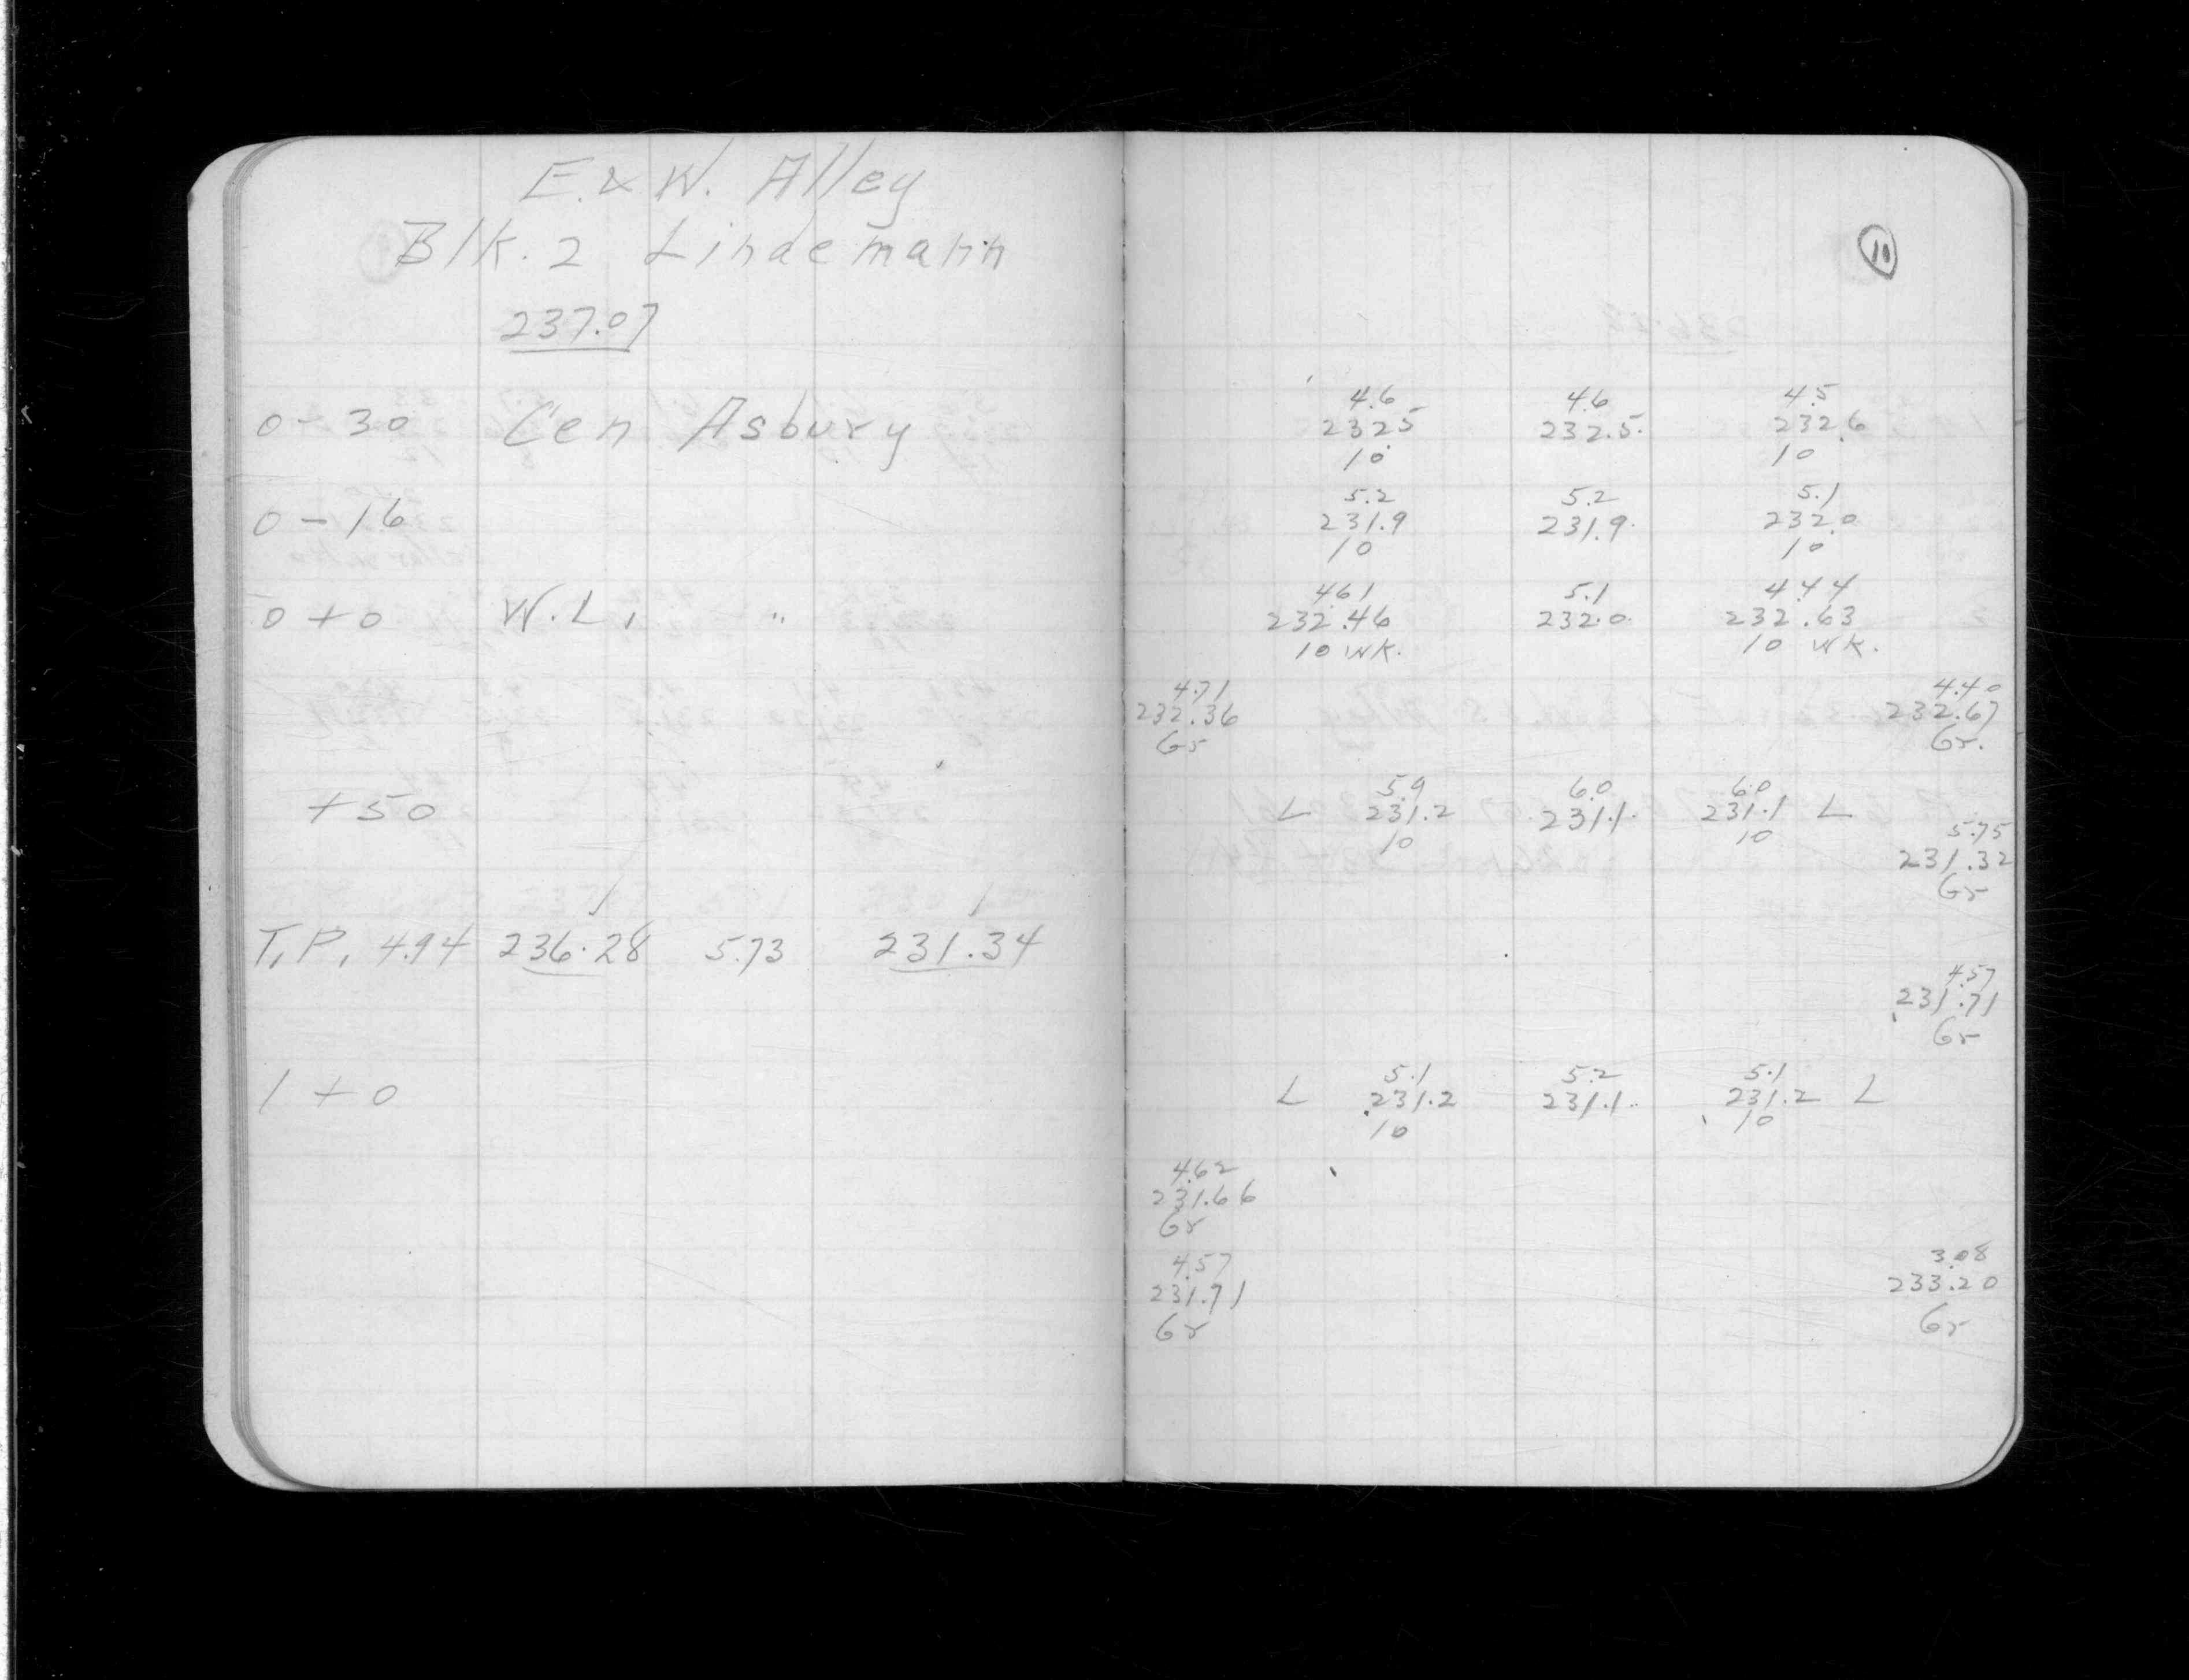 E. & W. Alley
Blk. 2 Lindemann
237.07
0 - 30 Cen Asbury
0 - 16
0 + 0 W.L. "
+ 50
T.P. 4.94 236.28 5.73 231.34
1 + 0
10
4.6 4.6 4.5
232.5 232.5 232.6
10 10
5.2 5.2 5.1
231.9 231.9 232.0
10 10
4.61 5.1 4.44
232.46 232.0 232.63
10 WK. 10 WK.
4.71 4.40
232.36 232.67
Gr Gr.
5.9 6.0 6.0
L 231.2 231.1 231.1 L
10 10
5.75
231.32
Gr
4.57
231.71
Gr
5.1 5.2 5.1
L 231.2 231.1 231.2 L
10 10
4.62
231.66
Gr
4.57 3.08
231.71 233.20
Gr Gr